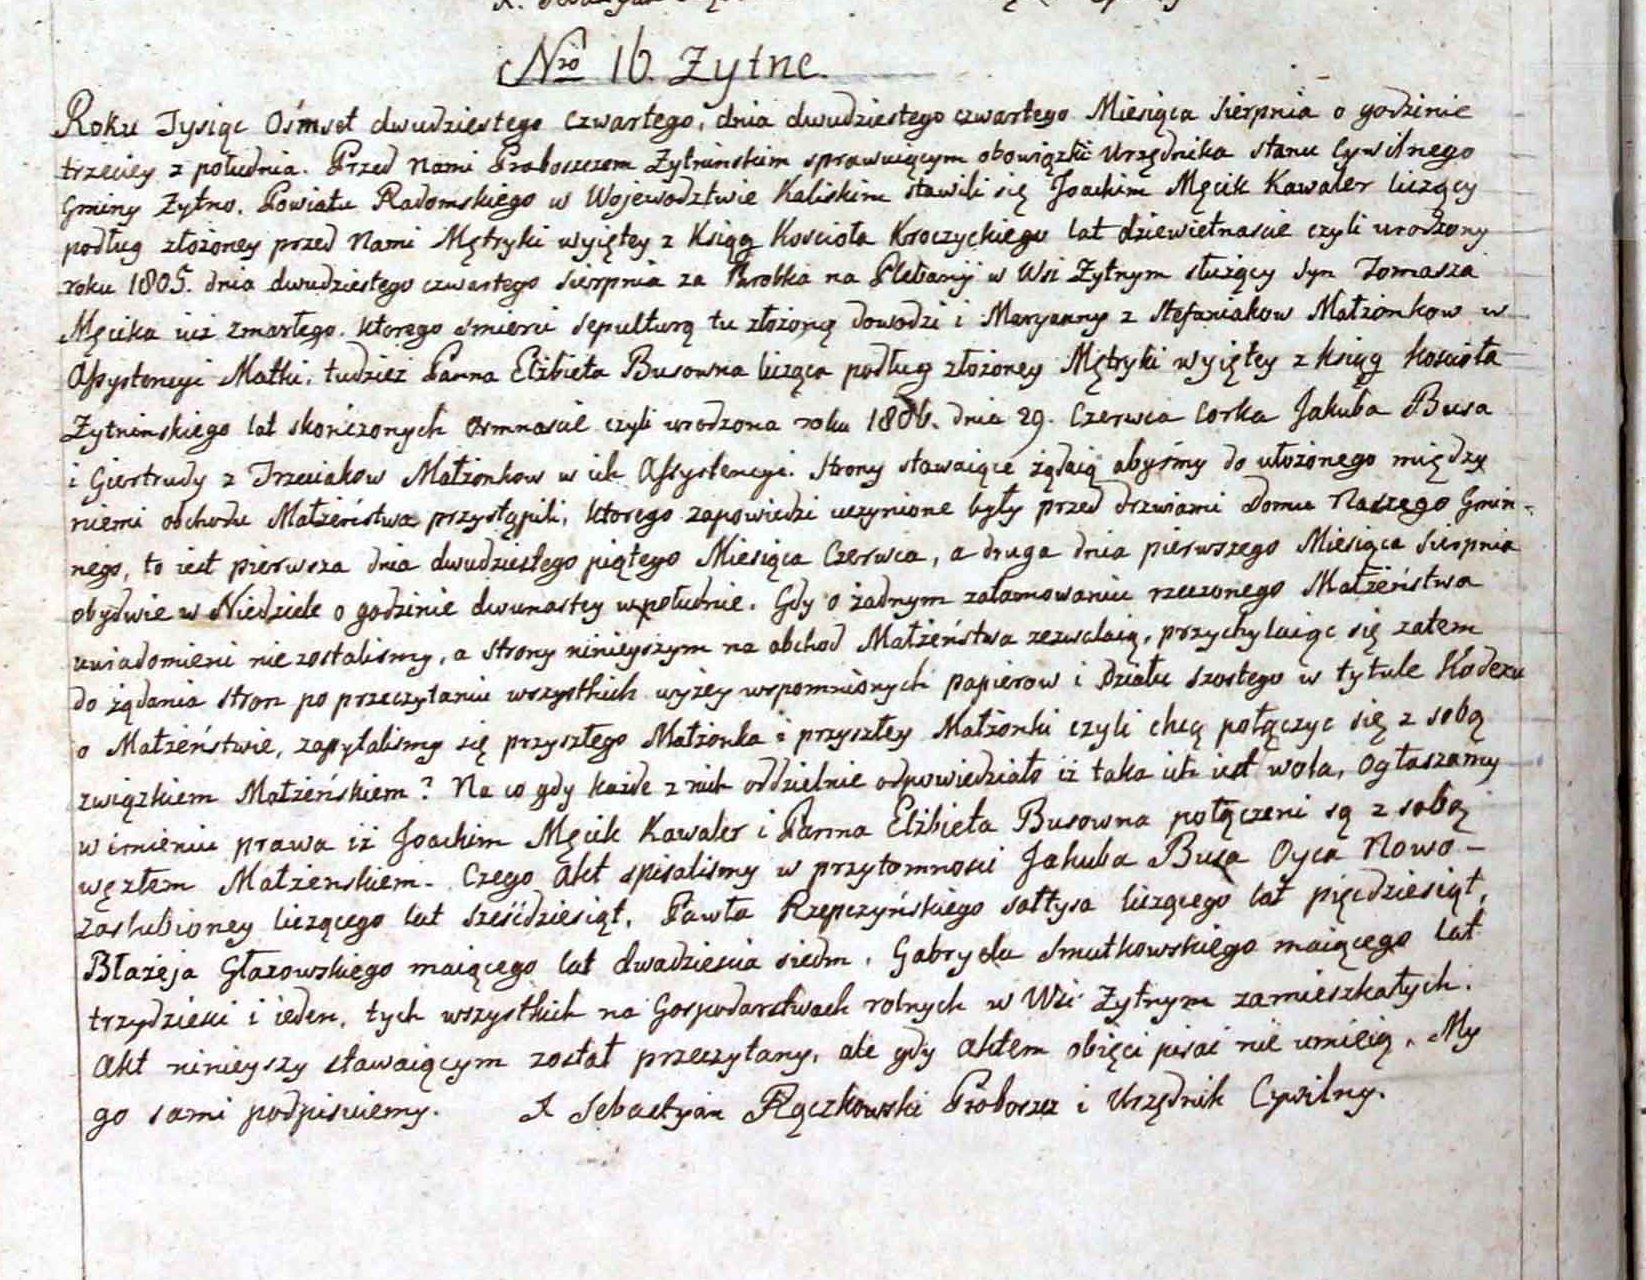 Nro 16. Zytne.
Roku Tysiąc Ośmset dwudziestego czwartego, dnia dwudziestego czwartego Miesiąca Sierpnia o godzinie
trzeciey z południa. Przed Nami Proboszczem Zytninskim sprawuiącym obowiązki Urzędnika stanu Cywilnego
Gminy Zytno. Powiatu Radomskiego w Wojewodztwie Kaliskim stawili się Joachim Męcik Kawaler liczący
podług złożoney przed Nami Mętryki wyiętey z Ksiąg Kościoła Kroczyckiego lat dziewietnascie czyli urodzony
roku 1805. dnia dwudziestego czwartego Sierpnia za Parobka na Plebanij w Wsi Zytnym służący Syn Tomasza
Męcika iuż zmarłego. którego smierci sepulturą tu złożoną dowodzi i Maryanny z Stefaniakow Małżonkow w
Assystencyi Matki, tudzież Panna Elżbieta Busowna licząca podług złożoney Mętryki wyiętey z ksiąg kościoła
Zytninskiego lat skończonych osmnascie czyli urodzona roku 1806. dnia 29. Czerwca Corka Jakuba Busa
i Giertrudy z Trzeciakow Małżonkow w ich Assystencyi. Strony stawaiące żądaią abyśmy do ułożonego między
niemi obchodu Małżeństwa przystąpili, którego zapowiedzi uczynione były przed drzwiami domu Naszego Gmin-
nego, to iest pierwsza dnia dwudziestego piątego Miesiąca Czerwca, a druga dnia pierwszego Miesiąca Sierpnia
obydwie w Niedziele o godzinie dwunastey w południe. Gdy o żadnym zatamowaniu rzeczonego Małżeństwa
uwiadomieni nie zostalismy, a strony ninieyszym na obchod Małżeństwa zezwalaią, przychylaiąc się zatem
do żądania stron po przeczytaniu wszystkich wyżey wspomnionych papierow i Działu szostego w tytule Kodexu
o Małżeństwie, zapytalismy się przyszłego Małżonka i przyszłey Małżonki czyli chcą połączyc się z sobą
związkiem Małżeńskiem? Na co gdy każde z nich oddzielnie odpowiedziało iż taka ich iest wola, Ogłaszamy
w imieniu prawa iż Joachim Męcik Kawaler i Panna Elżbieta Busowna połączeni są z sobą
węzłem Małżenskiem. Czego Akt spisalismy w przytomnosci Jakuba Busa Oyca Nowo-
zaslubioney liczącego lat sześćdziesiąt, Pawła Rzepczyńskiego sołtysa liczącego lat pięcdziesiąt,
Błażeja Głazowskiego maiącego lat dwadziescia siedm, Gabryela Smutkowskiego maiącego lat
trzydzieści i ieden, tych wszystkich na Gospodarstwach rolnych w Wsi Zytnym zamieszkałych.
Akt ninieyszy stawaiącym został przeczytany, ale gdy aktem obięci pisać nie umieią, My
go sami podpisuiemy. X Sebastyan Rączkowski Proboszcz i Urzędnik Cywilny.